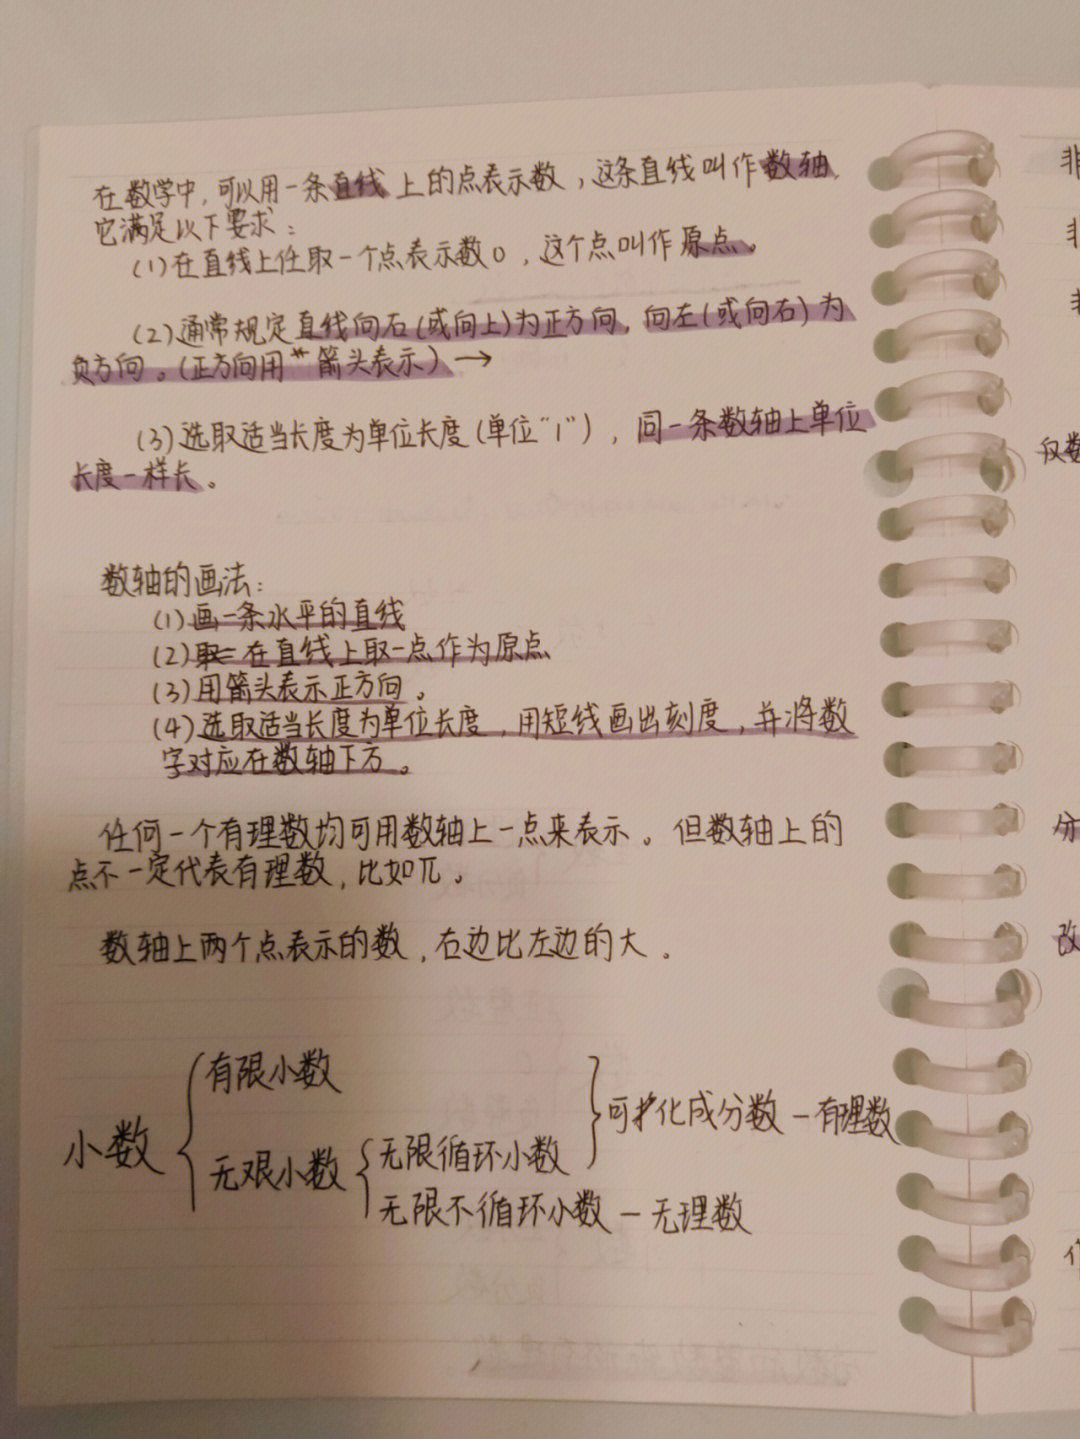 在数学中,可以用一条直线上的点表示数,这条直线叫作数轴,
它满足以下要求:
(1)在直线上任取一个点表示数0,这个点叫作原点。
(2)通常规定直线向右(或向上)为正方向,向左(或向右)为
负方向。(正方向用箭头表示)→
(3)选取适当长度为单位长度(单位"1"),同一条数轴上单位
长度一样长。
数轴的画法:
(1)画一条水平的直线
(2)在直线上取一点作为原点
(3)用箭头表示正方向。
(4)选取适当长度为单位长度,用短线画出刻度,并将数
字对应在数轴下方。
任何一个有理数均可用数轴上一点来表示。但数轴上的
点不一定代表有理数,比如π。
数轴上两个点表示的数,右边比左边的大。
有限小数
小数 可化成分数-有理数
无限小数 无限循环小数
无限不循环小数-无理数
非
非
非
仅数
分
改